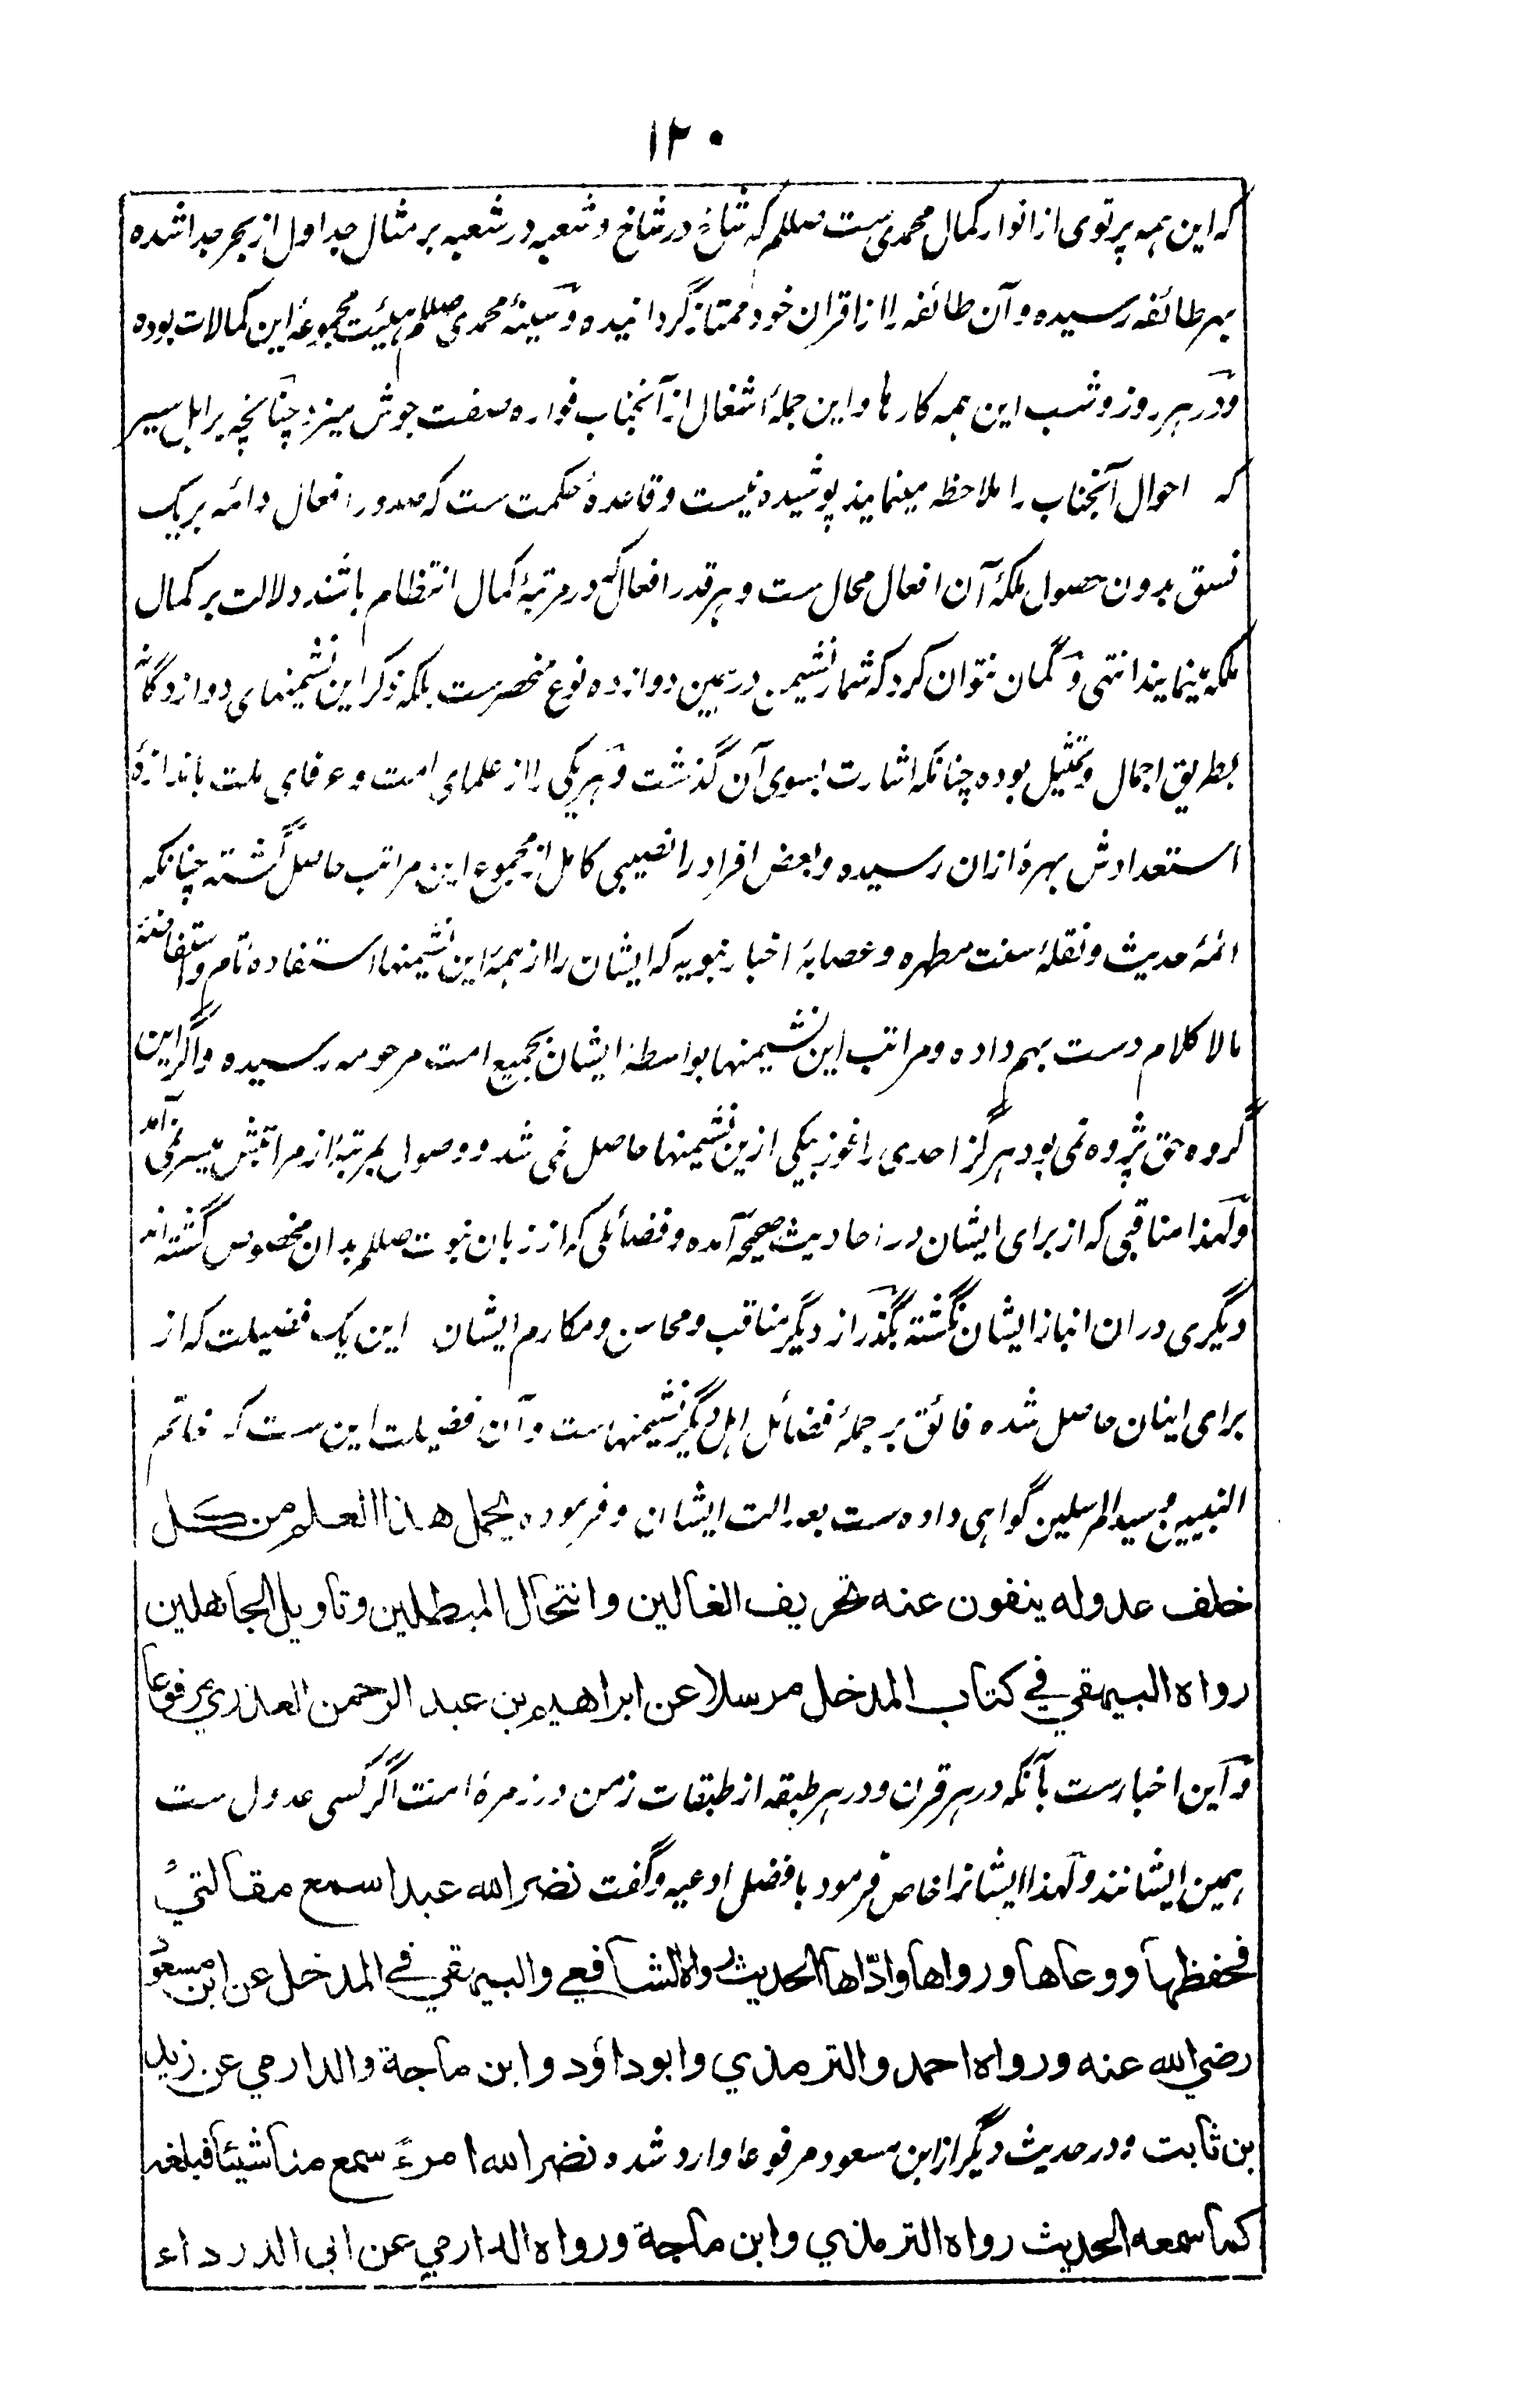 ۱۲۰
که این همه پرتوی از انوار کمال محمدی ست صللم که شاخ در شاخ و شعبه در شعبه بر مثال جداول از بحر جدا شده
بهر طائفه رسیده و آن طائفه را از اقران خود ممتاز گردانیده و سینۀ محمدی صللم هیئت مجموعۀ این کمالات بوده
و در هر روز و شب این همه کارها و این جملۀ اشغال از آنجناب فواره صفت جوش میزد چنانچه بر اهل سیر
که احوال آنجناب را ملاحظه مینمایند پوشیده نیست و قاعدۀ حکمت ست که صدور افعال دائمه بر یک
نسق بدون حصول ملکۀ آن افعال محال ست و هر قدر افعال که در مرتبۀ کمال انتظام باشند دلالت بر کمال
ملکه مینمایند انتهی و گمان نتوان کرد که شمار نشیمن در همین دوازده نوع منحصر ست بلکه ذکر این نشیمنهای دوازده گانه
بطریق اجمال و تمثیل بوده چنانکه اشارت بسوی آن گذشت و هر یکی را از علمای امت و عرفای ملت باندازۀ
استعدادش بهرۀ ازان رسیده و بعض افراد را نصیبی کامل از مجموع این مراتب حاصل گشته چنانکه
ائمۀ حدیث و نقلۀ سنت مطهره و عصابۀ اخبار نبویه که ایشان را از همۀ این نشیمنها استفادۀ تام و استفاضۀ
مالاکلام دست بهم داده و مراتب این نشیمنها بواسطۀ ایشان بجمیع امت مرحومه رسیده و اگر این
گروه حق پژوه نمی بود هرگز احدی را فوز بیکی ازین نشیمنها حاصل نمی شد و وصول بمرتبۀ از مراتبش میسر نمی آمد
و لهذا مناقبی که از برای ایشان در احادیث صحیحه آمده و فضائلی که از زبان نبوت صللم بدان مخصوص گشته اند
دیگری دران انباز ایشان نگشته بگذر از دیگر مناقب و محاسن و مکارم ایشان این یک فضیلت که از
برای اینان حاصل شده فائق بر جملۀ فضائل اهل دیگر نشیمنهاست و آن فضیلت این ست که خاتم
النبیین و سید المرسلین گواهی داده ست بعدالت ایشان و فرموده یحمل هذا العلم من کل
خلف عدوله ینفون عنه تحریف الغالین وانتحال المبطلین وتاویل الجاهلین
رواه البیهقي في کتاب المدخل مرسلا عن ابراهیم بن عبد الرحمن العذري مرفوعا
و این اخبارست بآنکه در هر قرن و در هر طبقه از طبقات زمن در زمرۀ امت اگر کسی عدول ست
همین ایشانند و لهذا ایشانرا خاص فرمود بافضل ادعیه و گفت نضر الله عبدا سمع مقالتي
فحفظها ووعاها ورواها وادّاها الحدیث رواه الشافعي والبیهقي في المدخل عن ابن مسعود
رضي الله عنه ورواه احمد والترمذي وابو داؤد وابن ماجة والدارمي عن زید
بن ثابت و در حدیث دیگر از ابن مسعود مرفوعا وارد شده نضر الله امرءً سمع منا شیئا فبلغه
کما سمعه الحدیث رواه الترمذي وابن ماجة ورواه الدارمي عن ابی الدرداء